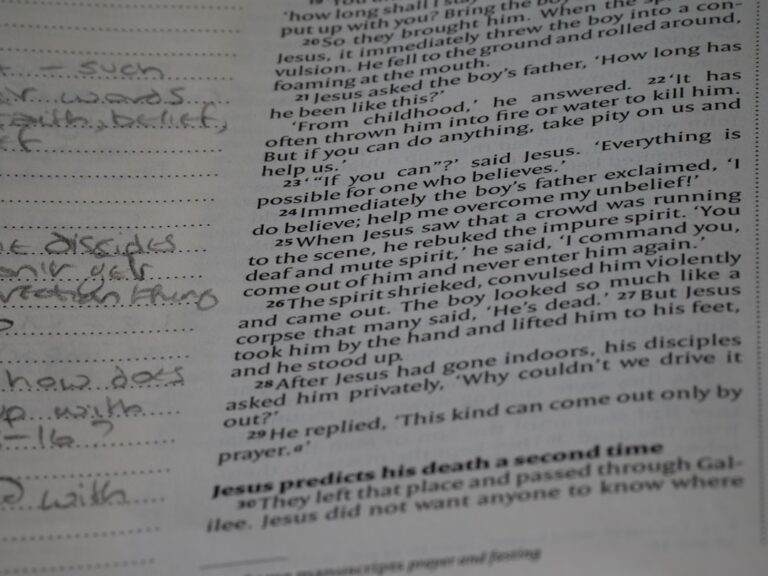 - such
words
faith, belief,
disciples
get
thing
how does
up with
-16?
with
'how long shall I stay
put up with you? Bring the boy
20So they brought him. When the
Jesus, it immediately threw the boy into a con-
vulsion. He fell to the ground and rolled around,
foaming at the mouth.
21Jesus asked the boy's father, 'How long has
he been like this?'
'From childhood,' he answered. 22'It has
often thrown him into fire or water to kill him.
But if you can do anything, take pity on us and
help us.'
23'"If you can"?' said Jesus. 'Everything is
possible for one who believes.'
24Immediately the boy's father exclaimed, 'I
do believe; help me overcome my unbelief!'
25When Jesus saw that a crowd was running
to the scene, he rebuked the impure spirit. 'You
deaf and mute spirit,' he said, 'I command you,
come out of him and never enter him again.'
26The spirit shrieked, convulsed him violently
and came out. The boy looked so much like a
corpse that many said, 'He's dead.' 27But Jesus
took him by the hand and lifted him to his feet,
and he stood up.
28After Jesus had gone indoors, his disciples
asked him privately, 'Why couldn't we drive it
out?'
29He replied, 'This kind can come out only by
prayer.a'
Jesus predicts his death a second time
30They left that place and passed through Gal-
ilee. Jesus did not want anyone to know where
manuscripts prayer and fasting